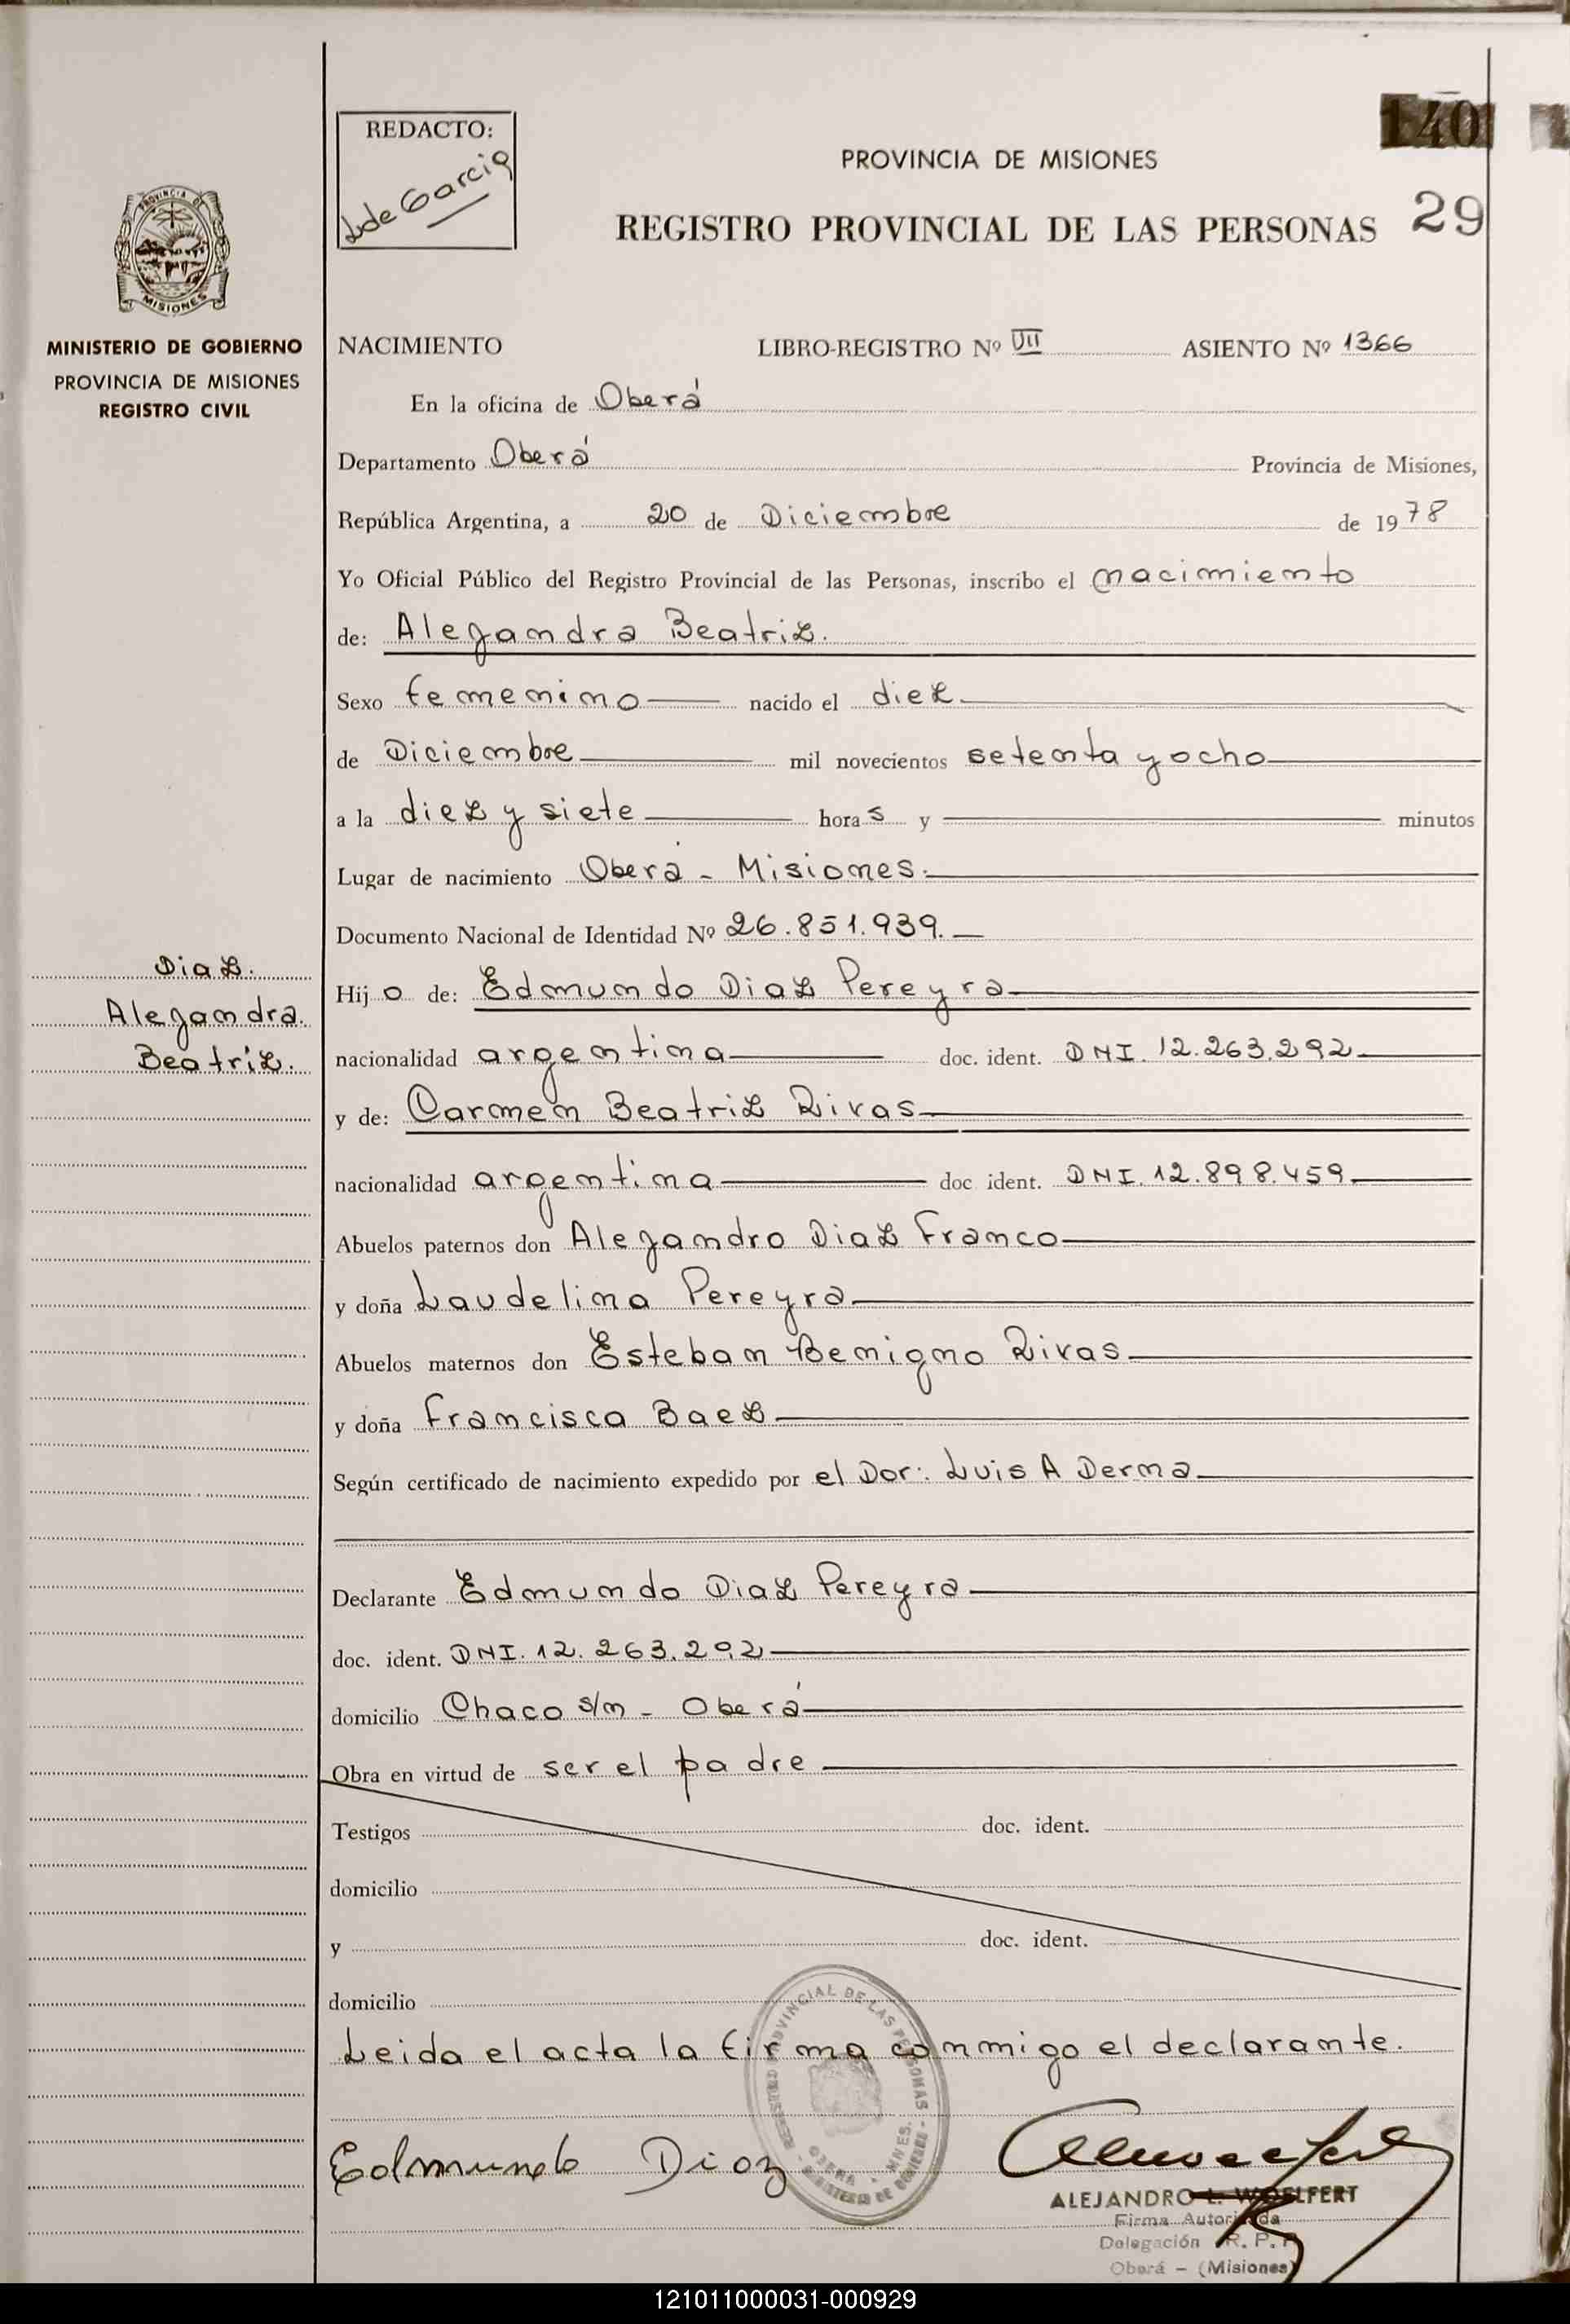 140
REDACTO:
L de Garcia
PROVINCIA DE MISIONES
REGISTRO PROVINCIAL DE LAS PERSONAS 29
PROVINCIA DE
MISIONES
MINISTERIO DE GOBIERNO
PROVINCIA DE MISIONES
REGISTRO CIVIL
NACIMIENTO LIBRO-REGISTRO Nº VII ASIENTO Nº 1366
En la oficina de Oberá
Departamento Oberá Provincia de Misiones,
República Argentina, a 20 de Diciembre de 1978
Yo Oficial Público del Registro Provincial de las Personas, inscribo el nacimiento
de: Alejandra Beatriz.
Sexo femenino nacido el diez
de Diciembre mil novecientos setenta y ocho
a la diez y siete horas y minutos
Lugar de nacimiento Oberá - Misiones.
Documento Nacional de Identidad Nº 26.851.939.
Diaz.
Alejandra.
Beatriz.
Hijo de: Edmundo Diaz Pereyra
nacionalidad argentina doc. ident. DNI. 12.263.292
y de: Carmen Beatriz Rivas
nacionalidad argentina doc ident. DNI. 12.898.459
Abuelos paternos don Alejandro Diaz Franco
y doña Laudelina Pereyra
Abuelos maternos don Esteban Benigno Rivas
y doña Francisca Baez
Según certificado de nacimiento expedido por el Dor: Luis A Derna
Declarante Edmundo Diaz Pereyra
doc. ident. DNI. 12.263.292
domicilio Chaco s/n - Oberá
Obra en virtud de ser el padre
Testigos doc. ident.
domicilio
y doc. ident.
domicilio
Leida el acta la firma conmigo el declarante.
REGISTRO PROVINCIAL DE LAS PERSONAS
OBERA - MNES.
MINISTERIO DE GOBIERNO
Edmundo Diaz
ALEJANDRO L. WOELFERT
Firma Autorizada
Delegación R. P. P.
Oberá - (Misiones)
121011000031-000929